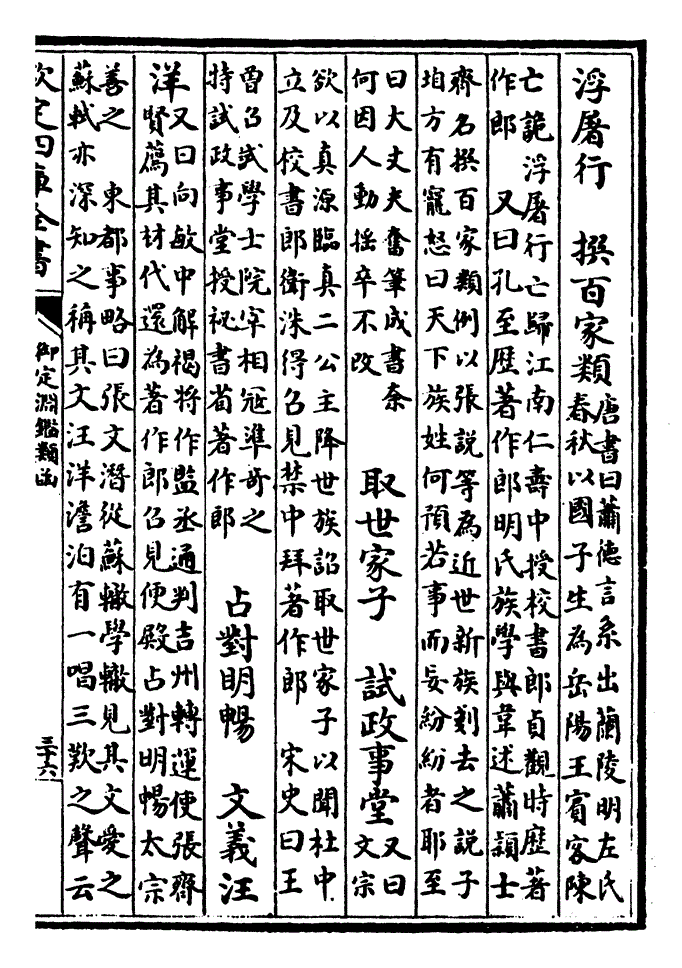 浮屠行　撰百家類唐書曰蕭德言系出蘭陵明左氏
春秋以國子生為岳陽王賓客陳
亡詭浮屠行亡歸江南仁壽中授校書郎貞觀時歷著
作郎　又曰孔至歷著作郎明氏族學與韋述蕭穎士
齊名撰百家類例以張說等為近世新族剟去之說子
垍方有寵怒曰天下族姓何預若事而妄紛紛者耶至
曰大丈夫奮筆成書柰
何因人動揺卒不改　取世家子　試政事堂又曰
文宗
欲以真源臨真二公主降世族詔取世家子以聞杜中
立及校書郎衛洙得召見禁中拜著作郎　宋史曰王
曽召試學士院宰相冦準竒之
特試政事堂授祕書省著作郎　占對明暢　文義汪
洋又曰向敏中解褐將作監丞通判吉州轉運使張齊
賢薦其材代還為著作郎召見便殿占對明暢太宗
善之　東都事略曰張文潛從蘇轍學轍見其文愛之
蘇軾亦深知之稱其文汪洋澹泊有一唱三歎之聲云
欽定四庫全書
御定淵鑑類函
三十六